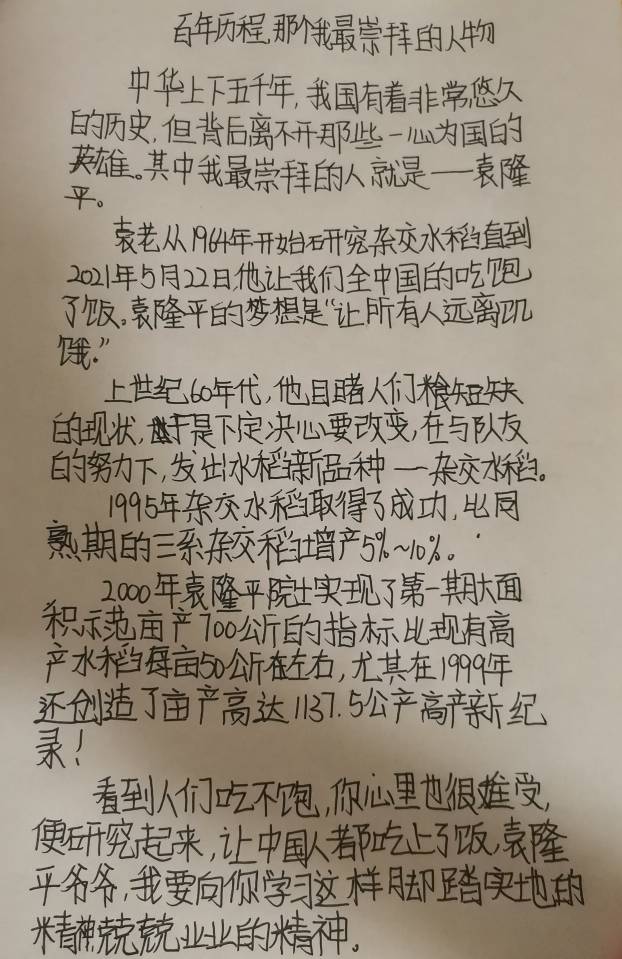 百年历程,那个我最崇拜的人物
中华上下五千年,我国有着非常悠久
的历史,但背后离不开那些一心为国的
英雄。其中我最崇拜的人就是——袁隆
平。
袁老从1964年开始研究杂交水稻直到
2021年5月22日,他让我们全中国的吃饱
了饭。袁隆平的梦想是“让所有人远离饥
饿。”
上世纪60年代,他目睹人们粮短缺
的现状,于是下定决心要改变,在与队友
的努力下,发出水稻新品种——杂交水稻。
1995年杂交水稻取得了成功,比同
熟期的三系杂交稻增产5%~10%。
2000年袁隆平院士实现了第一期大面
积示范亩产700公斤的指标比现有高
产水稻每亩50公斤在左右,尤其在1999年
还创造了亩产高达1137.5公产高产新纪
录!
看到人们吃不饱,你心里也很难受,
便研究起来,让中国人都吃上了饭,袁隆
平爷爷,我要向你学习这样脚踏实地的
精神兢兢业业的精神。